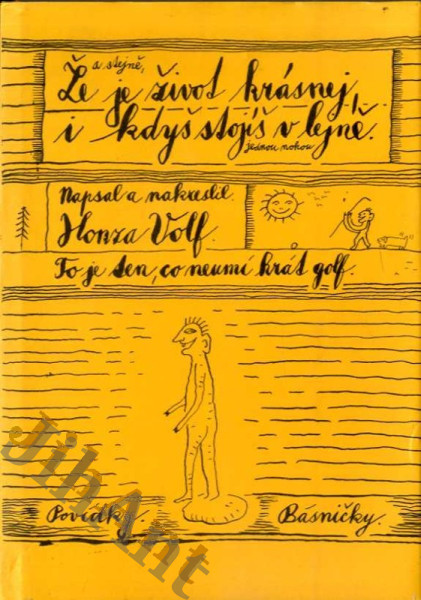 a stejně,
Že je život krásnej,
i kdyš stojíš v lejně.
jednou nohou
Napsal a nakreslil
Honza Volf.
To je ten, co neumí hrát golf.
Povídky. Básničky.
JihAnt